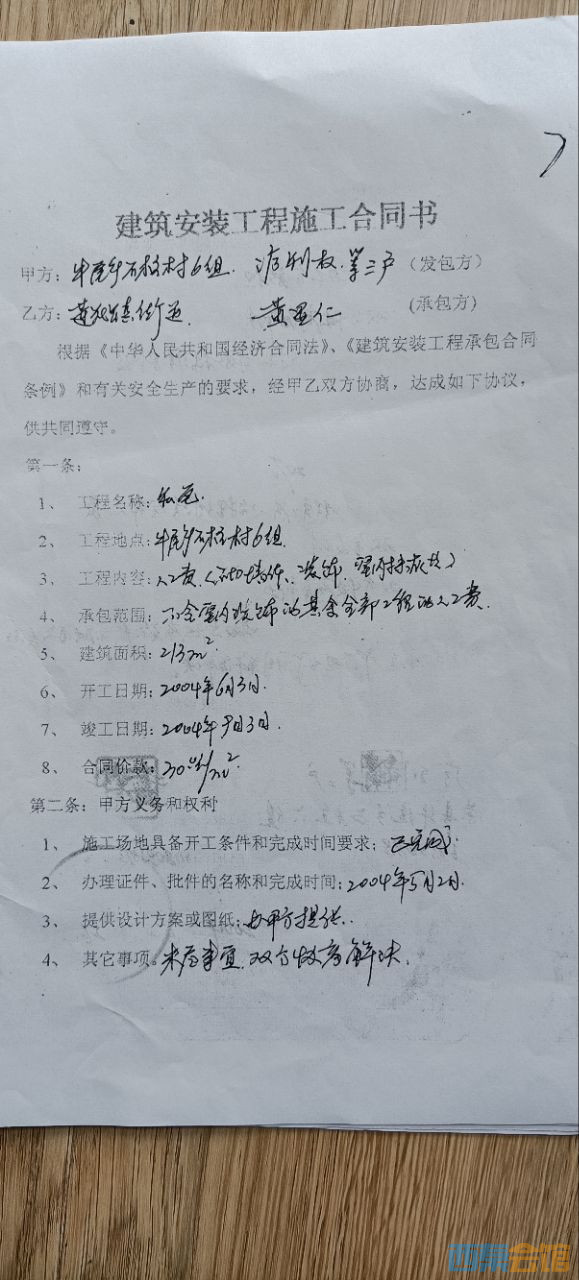 建筑安装工程施工合同书
甲方：石村6组.权.第三户（发包方）
乙方：镇街道 黄仁 (承包方)
根据《中华人民共和国经济合同法》、《建筑安装工程承包合同
条例》和有关安全生产的要求，经甲乙双方协商，达成如下协议，
供共同遵守。
第一条：
1、 工程名称：私宅.
2、 工程地点：石村6组.
3、 工程内容：人工费
4、 承包范围：不含室内装饰的其余全部工程的人工费.
5、 建筑面积：213m²
6、 开工日期：2004年6月3日.
7、 竣工日期：2004年9月3日.
8、 合同价款：/m²
第二条：甲方义务和权利
1、 施工场地具备开工条件和完成时间要求：已完成.
2、 办理证件、批件的名称和完成时间：2004年5月2日.
3、 提供设计方案或图纸：由甲方提供.
4、 其它事项。未尽事宜.双方协商解决.
西祠会馆